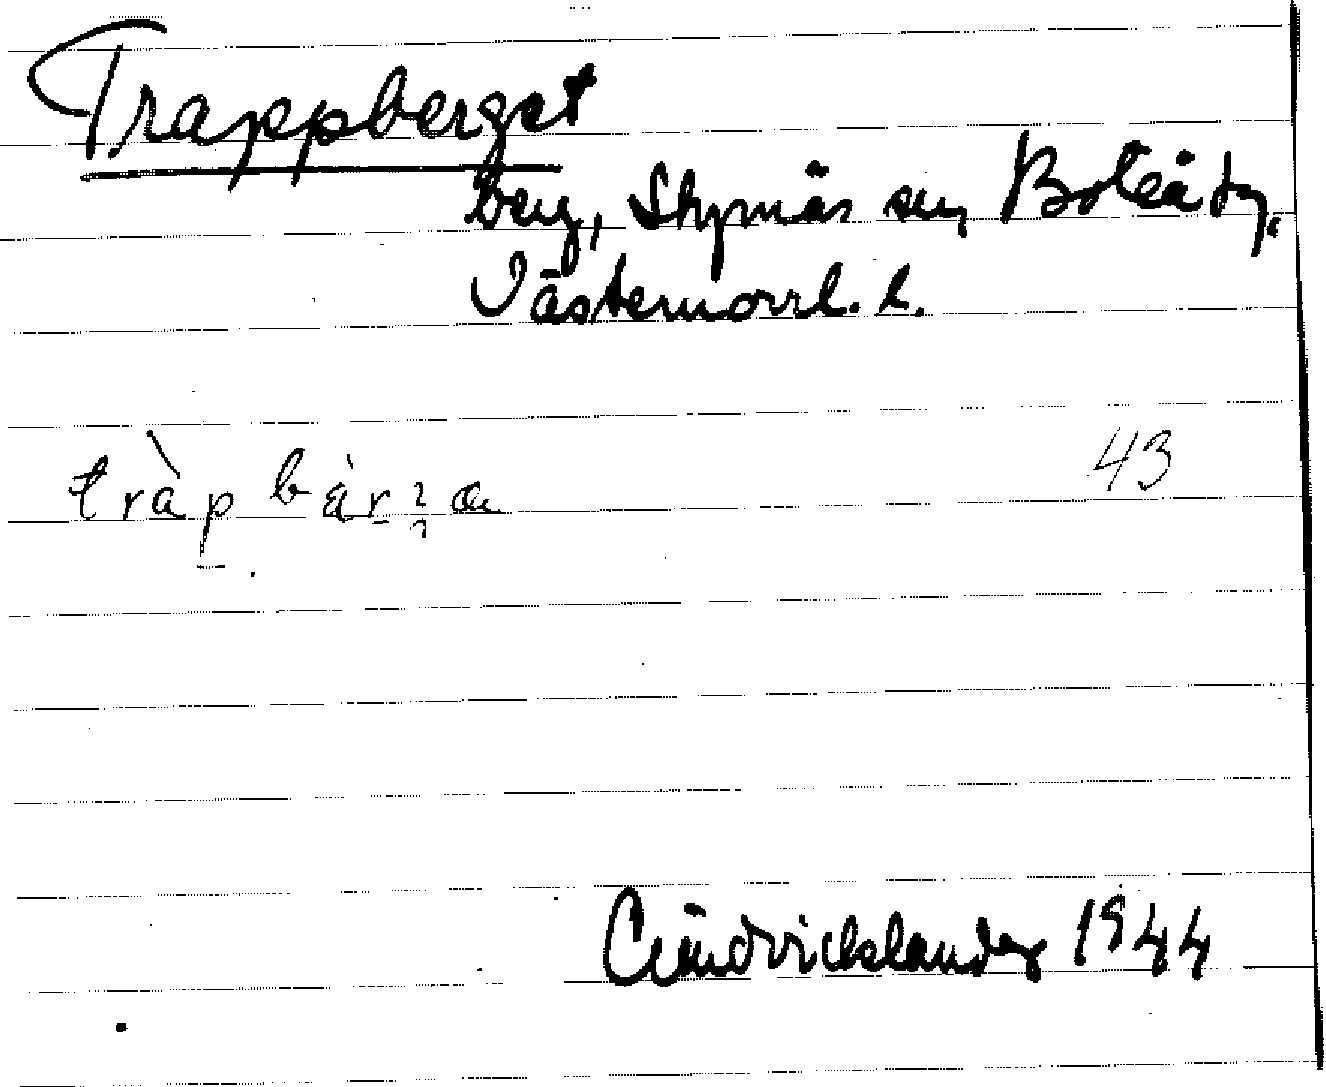 Trappberget
berg, Skymnäs sn, Boteå tg,
Västernorrl. l.
tràp bàrɂa
43
C Lindrickslander 1944